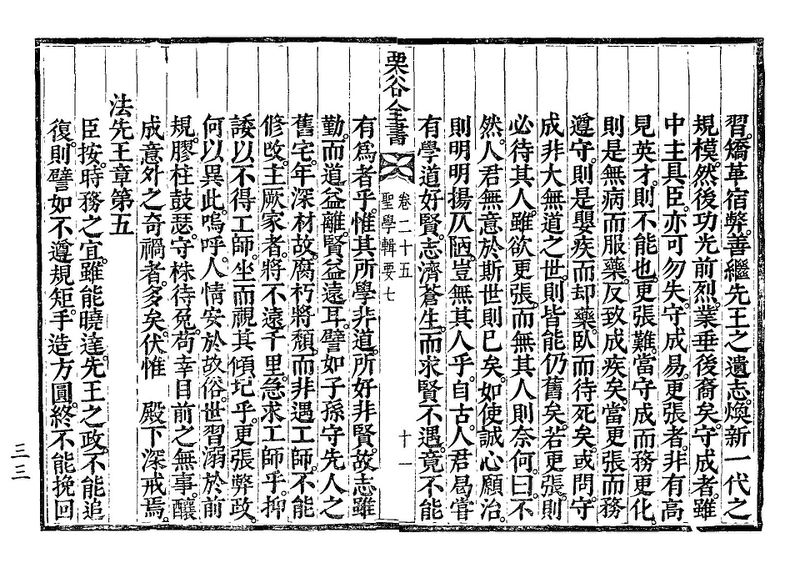 習。矯革宿弊。善繼先王之遺志。煥新一代之
規模。然後功光前烈。業垂後裔矣。守成者。雖
中主具臣。亦可勿失。守成易。更張者。非有高
見英才。則不能也。更張難。當守成而務更化。
則是無病而服藥。反致成疾矣。當更張而務
遵守。則是嬰疾而却藥。臥而待死矣。或問。守
成非大無道之世。則皆能仍舊矣。若更張。則
必待其人。雖欲更張。而無其人則奈何。曰。不
然。人君無意於斯世則已矣。如使誠心願治。
則明明揚仄陋。豈無其人乎。自古人君。曷嘗
有學道好賢。志濟蒼生。而求賢不遇。竟不能
栗谷全書
卷二十五
聖學輯要七
十一
有爲者乎。惟其所學非道。所好非賢。故志雖
勤而道益離。賢益遠耳。譬如子孫守先人之
舊宅。年深材故。腐朽將頹。而非遇工師。不能
修改。主厥家者。將不遠千里。急求工師乎。抑
諉以不得工師。坐而視其傾圮乎。更張弊政。
何以異此。嗚呼。人情安於故俗。世習溺於前
規。膠柱鼓瑟。守株待兔。苟幸目前之無事。釀
成意外之奇禍者。多矣。伏惟 殿下深戒焉。
法先王章第五
臣按。時務之宜。雖能曉達。先王之政。不能追
復。則譬如不遵規矩。手造方圓。終不能挽回
三三